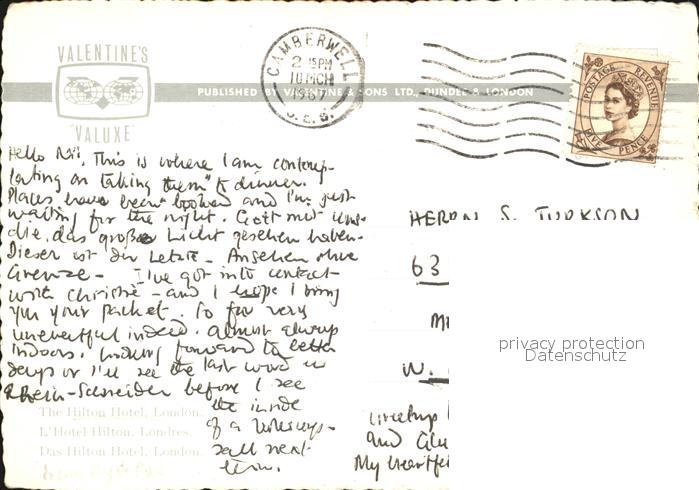 VALENTINE'S
"VALUXE"
PUBLISHED BY VALENTINE & SONS LTD., DUNDEE & LONDON
CAMBERWELL
2 15PM
10 MCH
1967
S.E.5.
POSTAGE REVENUE
FIVE PENCE
Hello Nii, This is where I am contemp-
lating on taking "them" to dinner.
Places have been "booked" and I'm just
waiting for the night. Gott mit uns-
die, das große Licht gesehen haben-
Dieser ist der Letzte - Ansehen ohne
Grenze - I've got into contact
with Christie - and I hope I bring
you your packet. So far very
uneventful indeed. almost always
indoors. Looking forward to better
days or I'll see the last word in
Rhein-Schneider before I see
the inside
of a
sall next
term.
The Hilton Hotel, London.
L'Hotel Hilton, Londres.
Das Hilton Hotel, London.
HERRN S. TURKSON
63
W.
and
My heartfe
privacy protection
Datenschutz